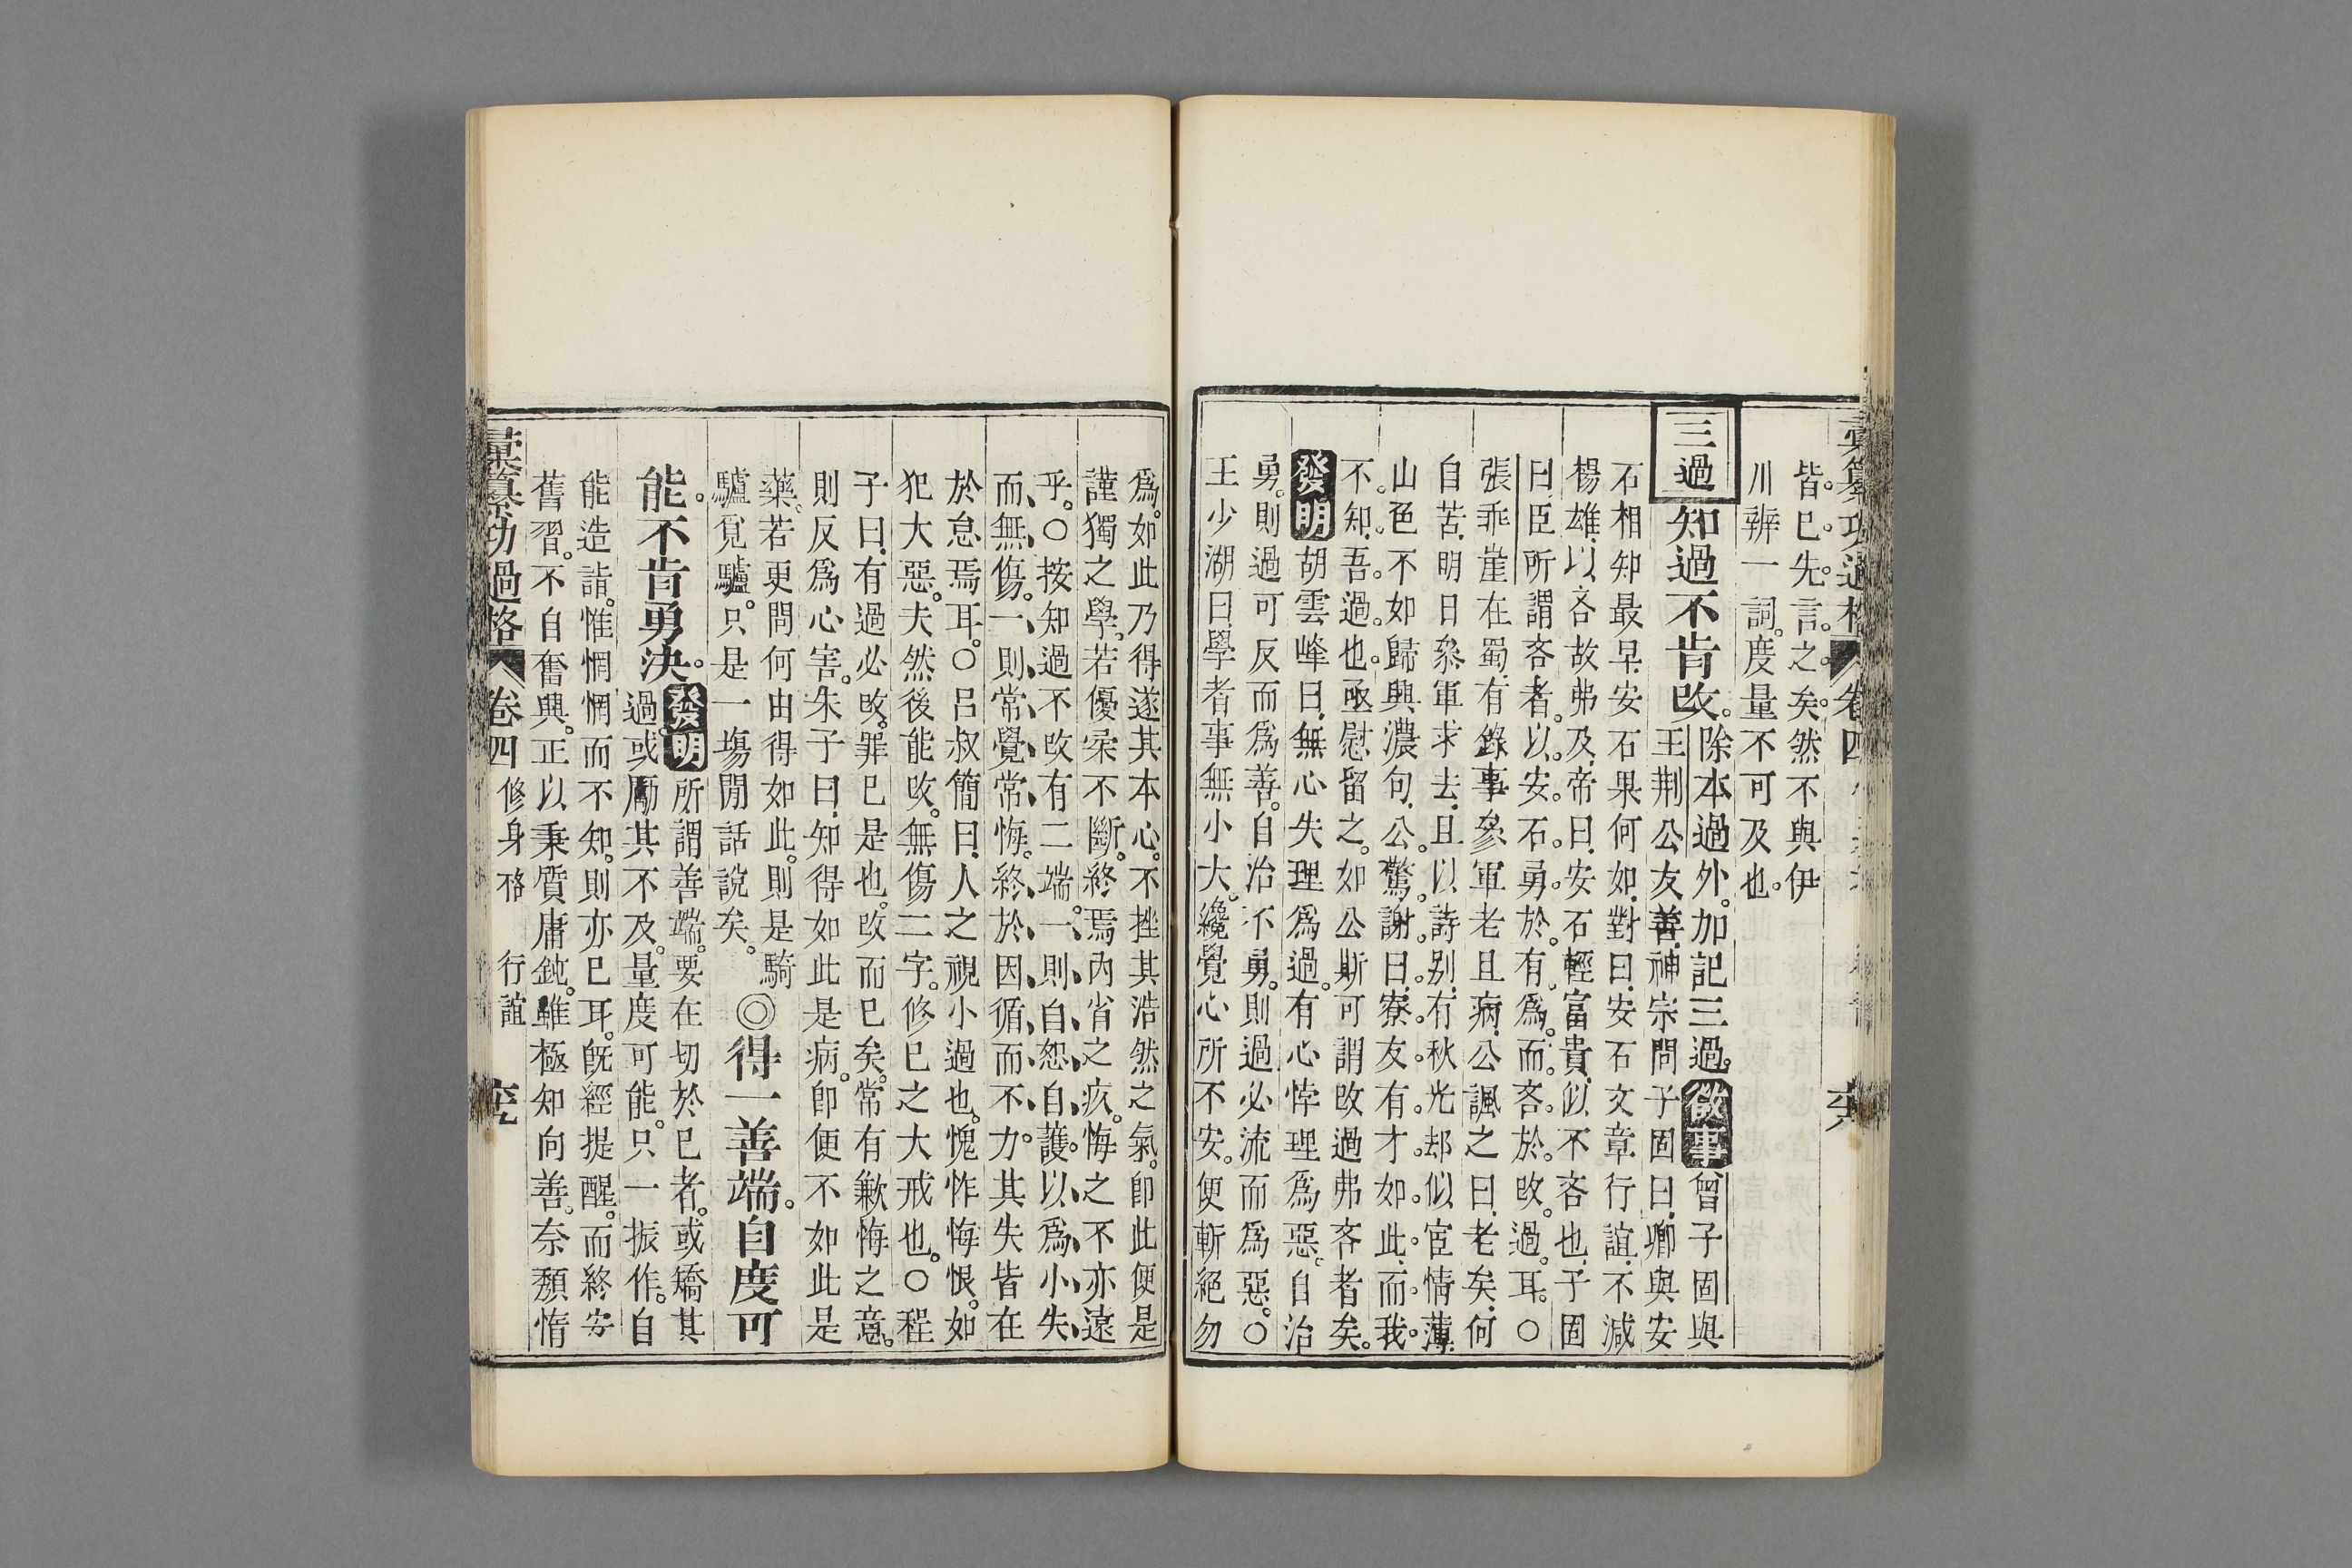 彙纂功過格 卷四
皆已先言之矣。然不與伊
川辨一詞。度量不可及也。
三過 知過不肯改。除本過外。加記三過。敘事 曾子固與
王荆公友善。神宗問子固曰。卿與安
石相知最早。安石果何如。對曰。安石文章行誼。不減
楊雄。以吝故弗及。帝曰。安石輕富貴。似不吝也。子固
曰。臣所謂吝者。以安石勇於有爲。而吝於改過耳。○
張乖崖在蜀。有錄事參軍老且病。公諷之曰。老矣。何
自苦。明日叅軍求去。且以詩别。有秋光却似宦情薄。
山色不如歸興濃句。公驚謝曰。寮友有才如此。而我
不知。吾過也。亟慰留之。如公斯可謂改過弗吝者矣。
發明 胡雲峰曰。無心失理爲過。有心悖理爲惡。自治
勇。則過可反而爲善。自治不勇。則過必流而爲惡。○
王少湖曰。學者事無小大。纔覺心所不安。便斬絕勿
爲。如此乃得遂其本心。不挫其浩然之氣。卽此便是
謹獨之學。若優柔不斷。終焉內省之疚。悔之不亦遠
乎。○按知過不改有二端。一則自恕自護。以爲小失
而無傷。一則常覺常悔。終於因循而不力。其失皆在
於怠焉耳。○呂叔簡曰。人之視小過也。愧怍悔恨。如
犯大惡。夫然後能改。無傷二字。修已之大戒也。○程
子曰。有過必改。罪已是也。改而已矣。常有歉悔之意。
則反爲心害。朱子曰。知得如此是病。卽便不如此是
藥。若更問何由得如此。則是騎
驢覓驢。只是一塲閒話說矣。◎得一善端。自度可
能。不肯勇決。發明 所謂善端。要在切於已者。或矯其
過。或勵其不及。量度可能。只一振作。自
能造詣。惟惘惘而不知。則亦已耳。旣經提醒。而終安
舊習。不自奮興。正以秉質庸鈍。雖極知向善。奈頽惰
彙纂功過格 卷四 修身格 行誼